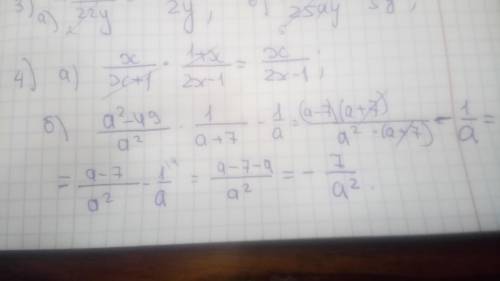 3) a) 22y 2y ; 25ay 5y ;
4) а) x/(x+1) · (1+x)/(2x-1) = x/(2x-1) ;
б) (a²-49)/a² · 1/(a+7) - 1/a = (a-7)(a+7)/(a²·(a+7)) - 1/a =
= (a-7)/a² - 1/a = (a-7-a)/a² = - 7/a² .